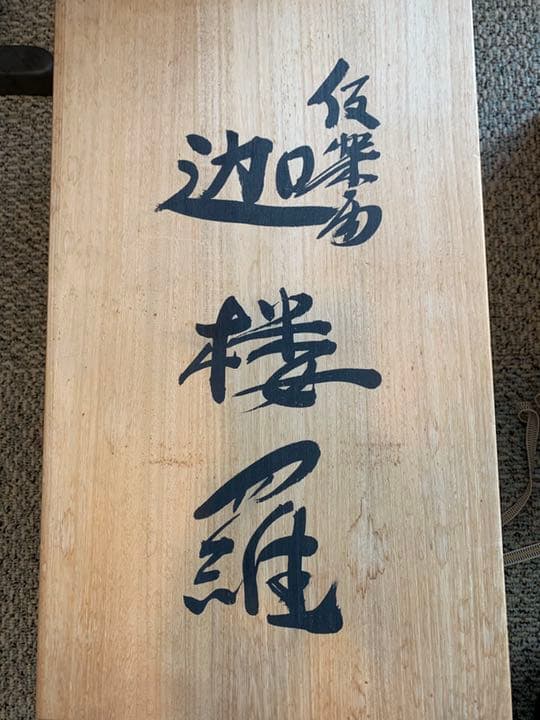 伎楽面
迦楼羅